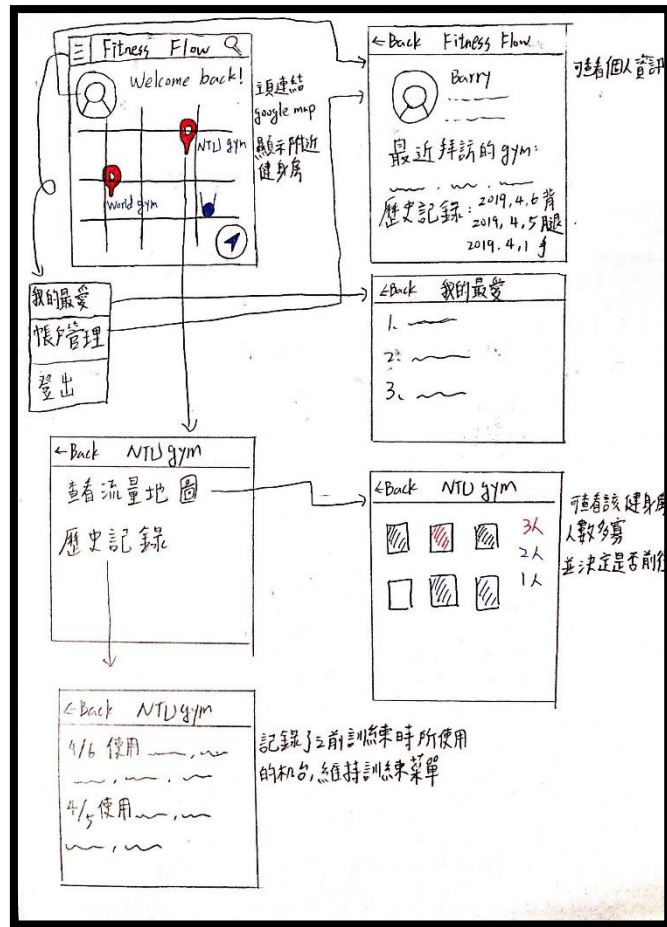 Fitness Flow
Welcome back!
NTU gym
World gym
主頁連結
google map
顯示附近
健身房
←Back Fitness Flow
Barry
最近拜訪的 gym:
歷史記錄: 2019,4,6 背
2019,4,5 腿
2019.4,1 手
可查看個人資訊
我的最愛
帳戶管理
登出
←Back 我的最愛
1、
2、
3、
←Back NTU gym
查看流量地圖
歷史記錄
←Back NTU gym
3人
2人
1人
可查看該健身房
人數多寡
並決定是否前往
←Back NTU gym
4/6 使用
4/5 使用
記錄了之前訓練時所使用
的机台,維持訓練菜單